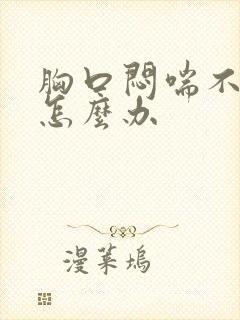 胸口悶喘不
怎麼办
漫菜塢